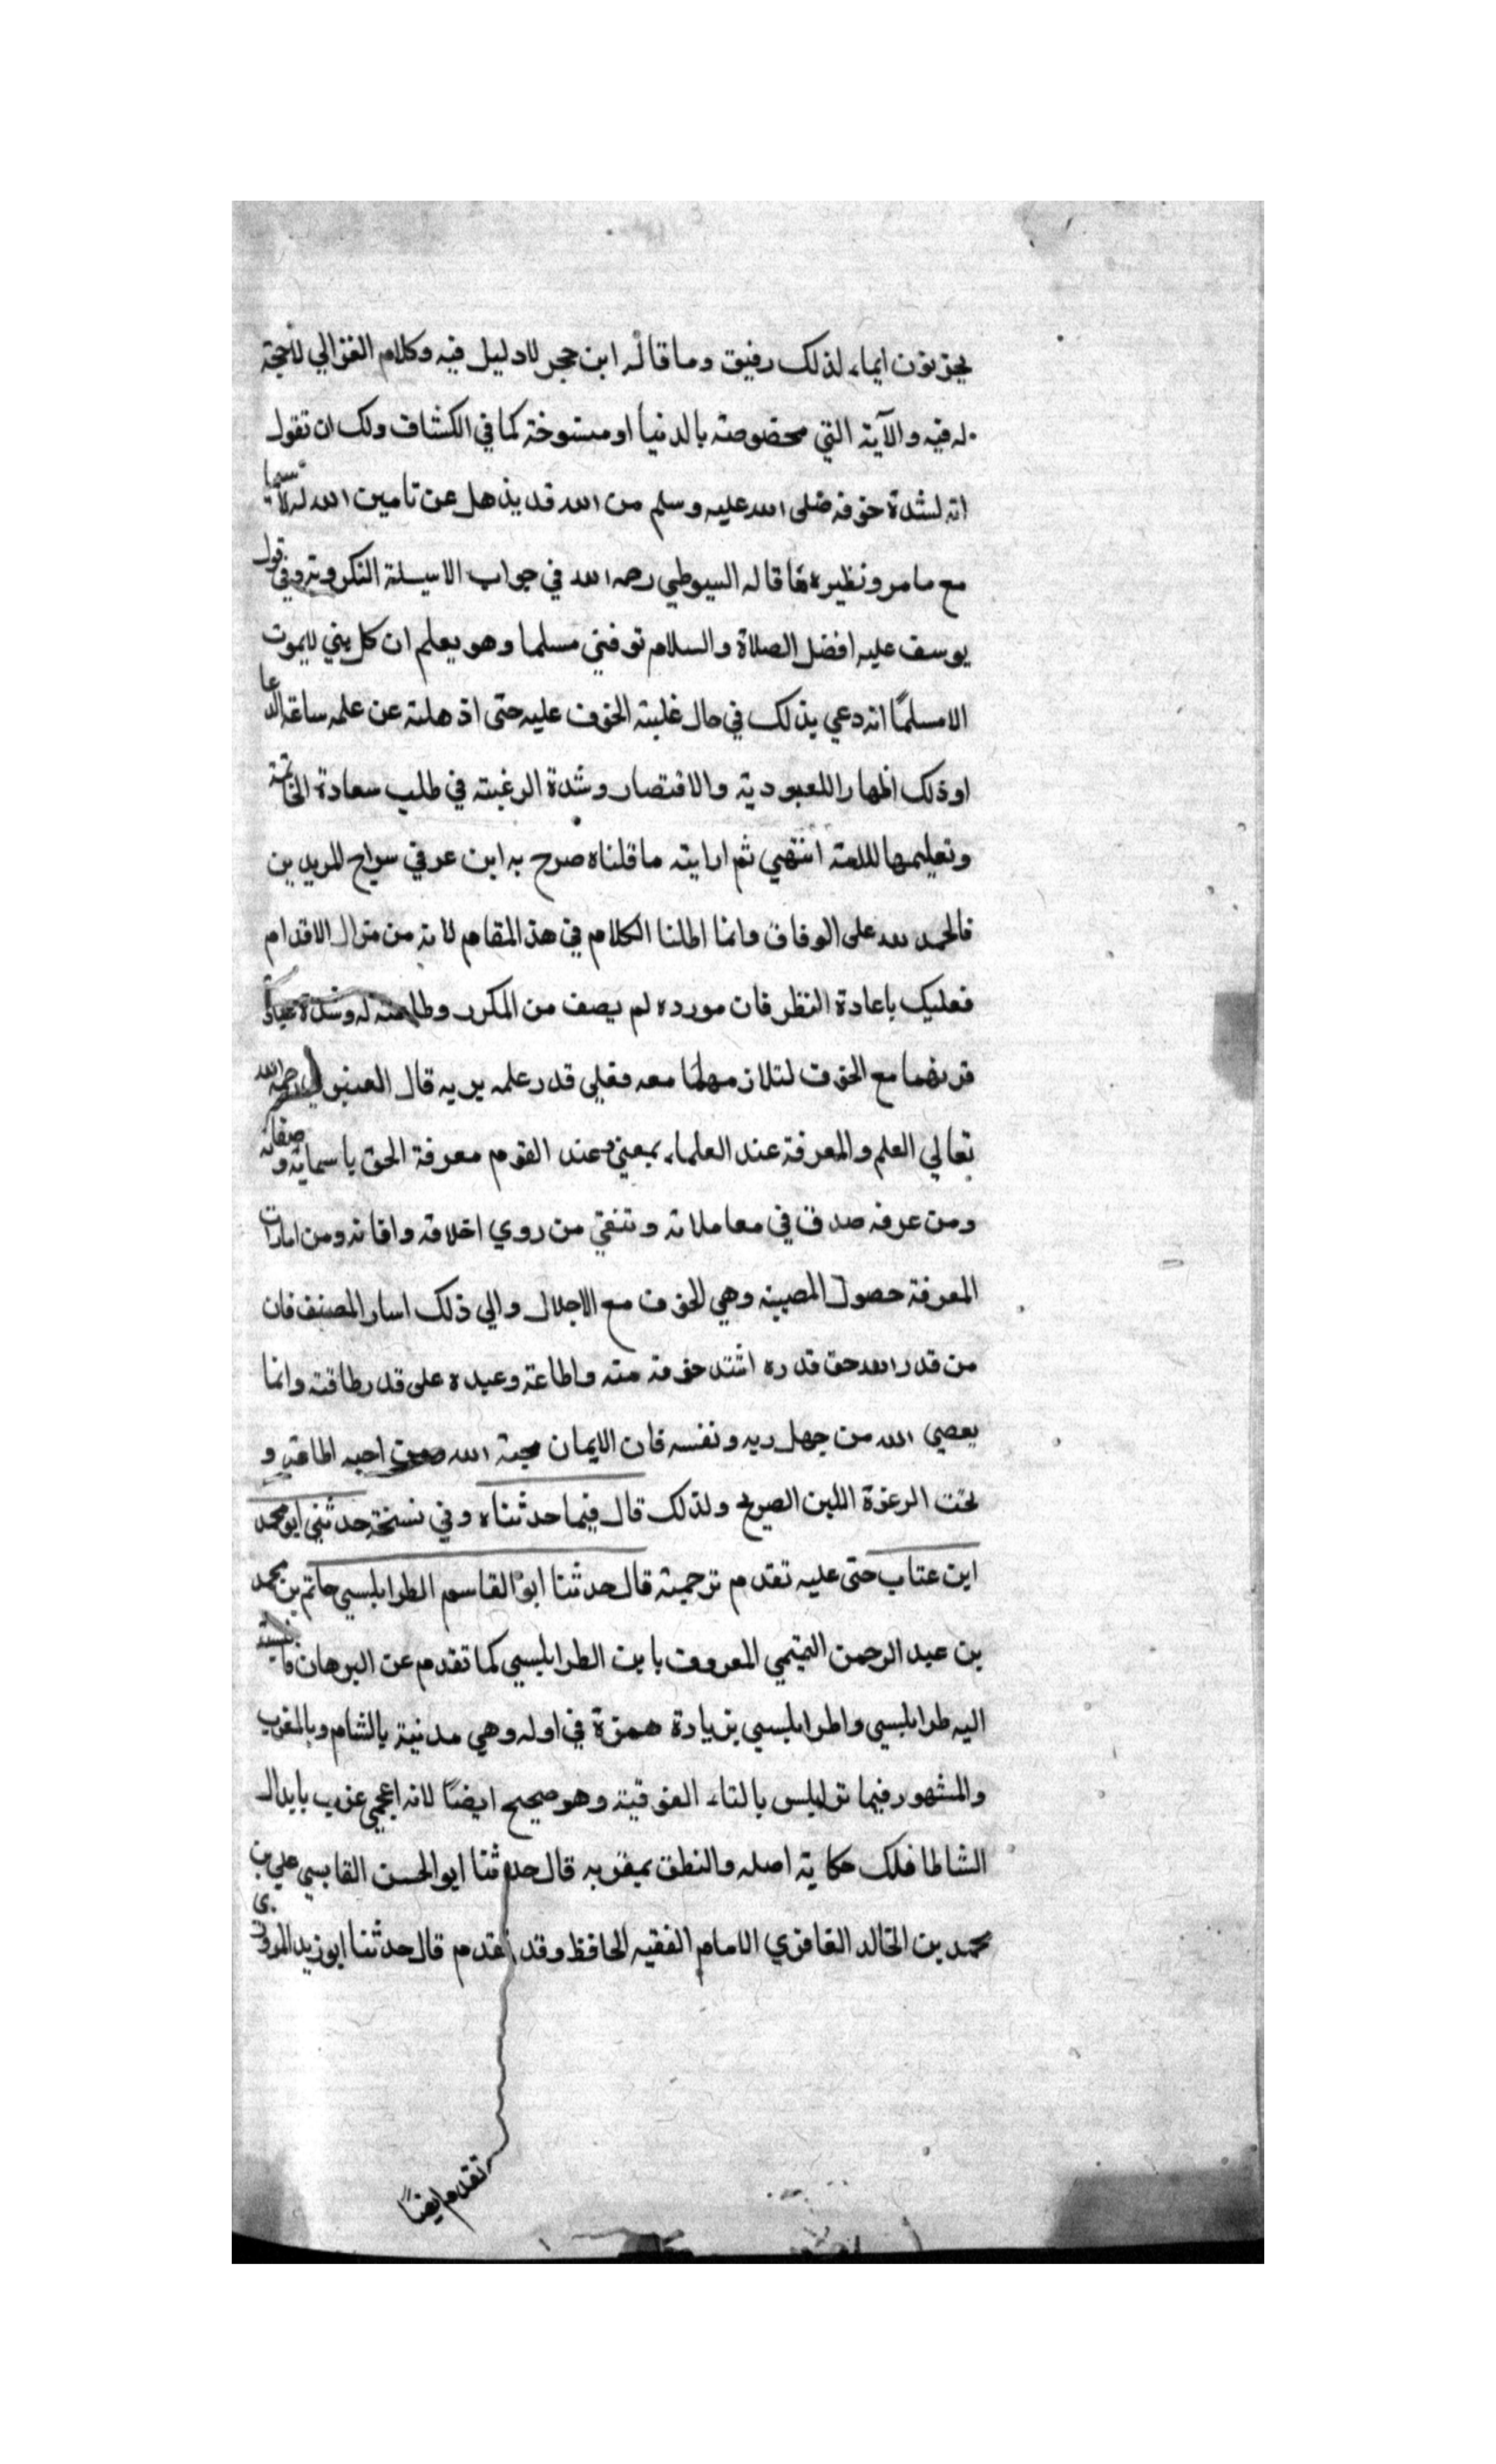 يحزنون ايماء لذلك رفيق وما قاله ابن حجر لا دليل فيه وكلام الغزالي لا حجة
له فيه والآية التي مخصوصة بالدنيا او منسوخة كما في الكشاف ولك ان تقول
انه لشدة خوفه صلى الله عليه وسلم من الله قد يذهل عن تامين الله له لا سيما
مع ما مر ونظيره ما قاله السيوطي رحمه الله في جواب الاسيلة التكرورية وفي قول
يوسف عليه افضل الصلاة والسلام توفني مسلما وهو يعلم ان كل نبي لا يموت
الا مسلمًا انه دعي بذلك في حال غلبة الخوف عليه حتى اذهلته عن علمه ساعة الدعا
او ذلك اظهارا للعبودية والافتصار وشدة الرغبة في طلب سعادة الخاتمة
وتعليمها للامة انتهي ثم ارايته ما قلناه صرح به ابن عر في سراج المريدين
فالحمد لله على الوفاق وانما اطلنا الكلام في هذ المقام لانه من مزال الاقدام
فعليك باعادة النظر فان مورده لم يصف من المكرر وطاعته له وشدة عبادته
قرنهما مع الخوف لتلازمهما معه فعلي قدر علمه بربه قال العنبري رحمه الله
تعالي العلم والمعرفة عند العلماء بمعني وعند القوم معرفة الحق باسمايه وصفاته
ومن عرفه صدق في معاملاته وتنقي من روي اخلاقه وافاته ومن امارات
المعرفة حصول المصيبة وهي الخوف مع الاجلال والي ذلك اسار المصنف فان
من قدر الله حق قدره اشتد خوفه منه واطاعة وعبده على قدر طاقته وانما
يعصي الله من جهل ربه ونفسه فان الايمان محبة الله ومن احبه اطاعه و
تحت الرغوة اللبن الصريح ولذلك قال فيما حدثناه وفي نسخة حدثني ابو محمد
ابن عتاب حتى عليه تقدم ترجمته قال حدثنا ابو القاسم الطرابلسي حاتم بن محمد
بن عبد الرحمن التميمي المعروف بابن الطرابلسي كما تقدم عن البرهان ما نسبة
اليه طرابلسي واطرابلسي بزيادة همزة في اوله وهي مدنية بالشام وبالمغرب
والمشهور فيما ترابلس بالتاء الفوقية وهو صحيح ايضًا لانه اعجمي عرب بابدال
الشاطا فلك حكاية اصله والنطق بمقربه قال حدثنا ابو الحسن القابسي علي بن
محمد بن الخالد القافري الامام الفقيه الحافظ وقد تقدم قال حدثنا ابو زيد المروزي
تقدم ايضًا